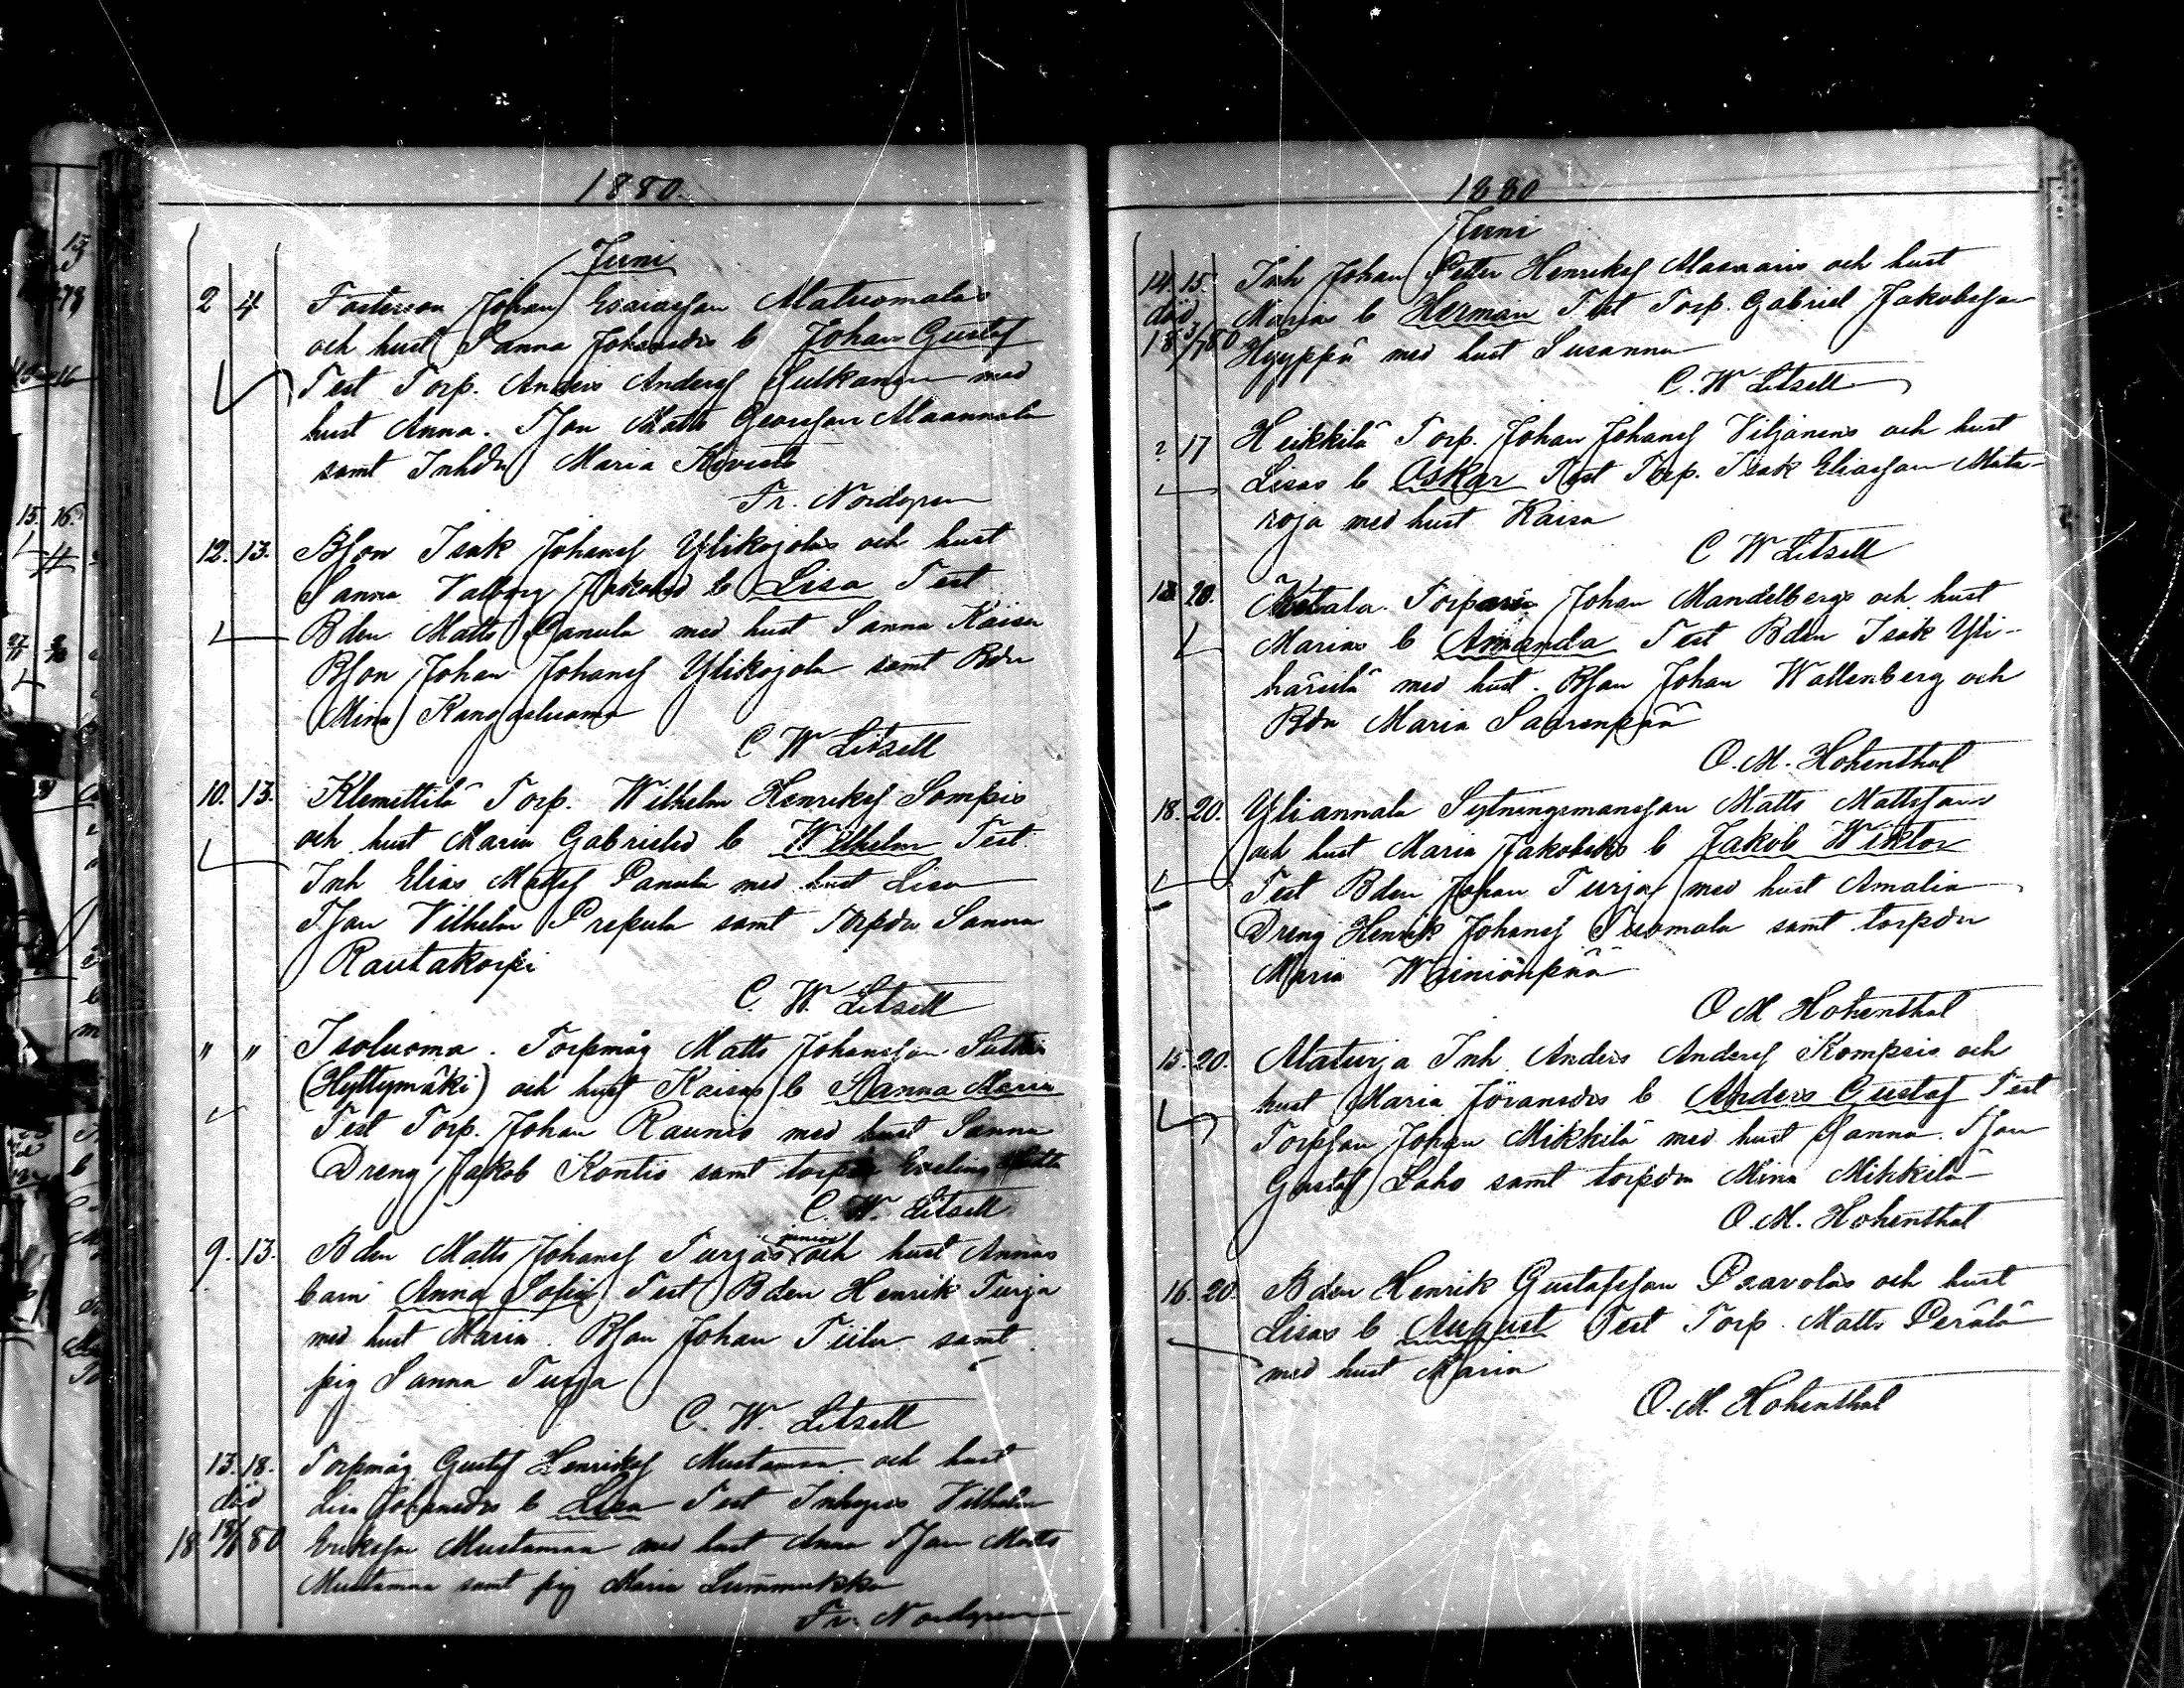 1880.
Juni
2 4 Fosterson Johan Esaiasson Alaluomalas
och hust Sanna Johansdrs b Johan Gustaf
Test Torp. Anders Andersf Pulkanen med
hust Anna. Tson Matts Georgson Alaannala
samt Inhdr Maria Koivisto
Fr. Nordgren
12. 13. Bson Isak Johansf Ylikojolas och hust
Sanna Valborg Jakobsd b Lisa Test
Bden Matts Panula med hust Sanna Kaisa
Bson Johan Johansf Ylikojola samt Bdr
Mina Kangasluoma
C W Litzell
10. 13. Klemettilä Torp. Wilhelm Henriksf Sompis
och hust Maria Gabrielsd b Wilhelm Test.
Inh Elias Mattsf Panula med hust Lisa
Tson Vilhelm Prepula samt torpdr Sanna
Rautakorpi
C. W. Litzell
" " Isoluoma. Torpmåg Matts Johansson
(Hyttymäki) och hust Kaisas b Sanna Maria
Test Torp. Johan Raunio med hust Sanna
Dreng Jakob Kontio samt torpdr Evelina
C. W. Litzell
9. 13. Bden Matts Johansf Turjas junior och hust Annas
barn Anna Sofia Test Bden Henrik Turja
med hust Maria. Bson Johan Tiila samt
pig Sanna Turja
C. W. Litzell
13. 18. Torpmåg Gustaf Henriksf Mustamaa och hust
död Lisa Johansdrs b Lisa Test Inhyses Vilhelm
18 18/6 80 Eriksson Mustamaa med hust Anna Tson Matts
Mustamaa samt pig Maria Lummukka
Fr. Nordgren
1880
Juni
14. 15. Inh Johan Petter Henriksf Alasaaris och hust
död Marias b Herman Test Torp. Gabriel Jakobsson
18 3/7 80 Hyyppä med hust Susanna
C. W Litzell
? 17 Heikkilä Torp. Johan Johansf Viljanens och hust
Lisas b Oskar Test Torp. Isak Eliasson Mata-
roja med hust Kaisa
C W Litzell
20. Torparen Johan Mandelbergs och hust
Marias b Amanda Test Bden Isak Yli-
härsilä med hust. Bson Johan Wallenberg och
Bdr Maria Saarenpää
O. M. Hohenthal
18. 20. Yliannala Sytningsmansson Matts Mattssons
och hust Maria Jakobsdrs b Jakob Wiktor
Test Bden Johan Turja med hust Amalia
Dreng Henrik Johansf Tuomala samt torpdr
Maria Wainiönpää
O M Hohenthal
15. 20. Alaturja Inh Anders Andersf Kompsis och
hust Maria Göransdrs b Anders Gustaf Test
Torpson Johan Mikkilä med hust Sanna. Tson
Gustaf Laho samt torpdr Mina Mikkilä
O. M. Hohenthal
16. 20. Bden Henrik Gustafsson Paavolas och hust
Lisas b August Test Torp. Matts Perälä
med hust Maria
O. M. Hohenthal